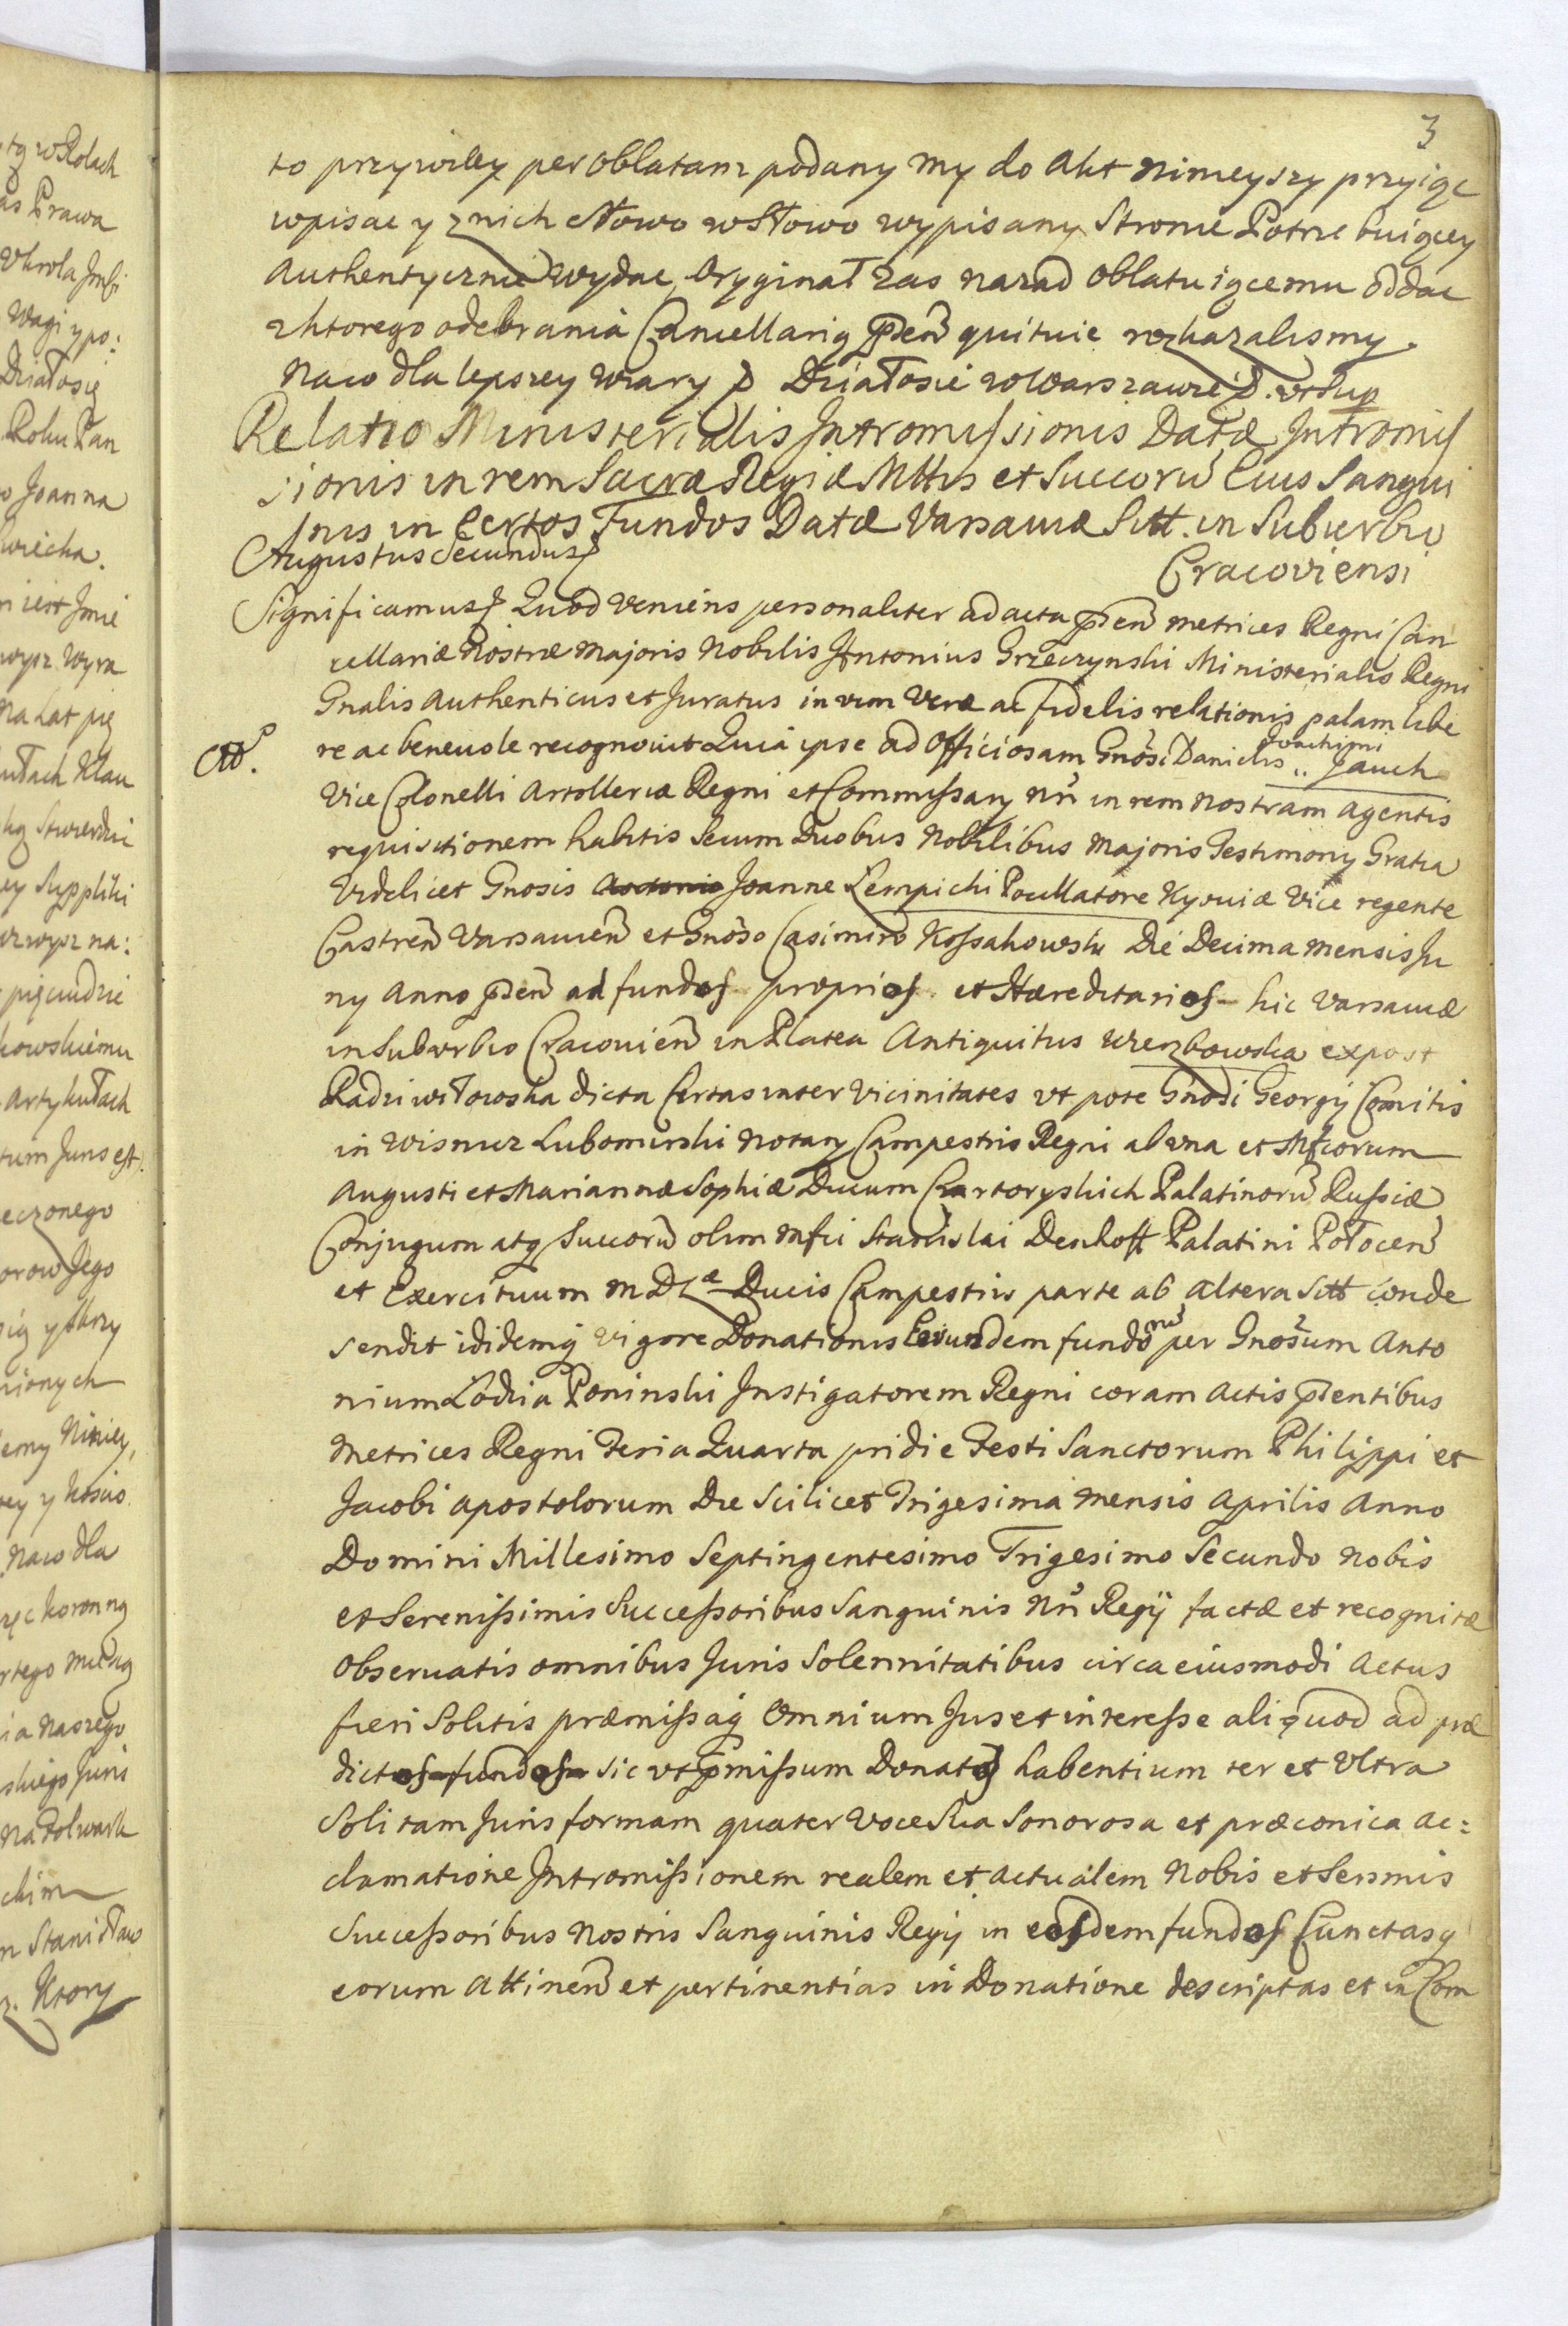 3
to przywiley per Oblatam podany my do Akt Ninieyszy przyiąc
wpisac y z nich słowo w słowo wypisany Stronie Potrze buiącey
Authentycznie Wydac, Oryginał zas nazad Oblatu iącemu oddac
z ktorego odebrania Cancellarią Pñtem quituie rozkazalismy.
Naco dla lepszey Wiary p Działosie w Warszawie D. ut sup
Relatio Ministerialis Intromissionis Datæ Intromis
sionis in rem Sacræ Regiæ Mttis et Succorũ Eius Sangui
inis in Certos Fundos Datæ Varsaviæ Sitt. in Suburbio
Cracoviensi
Augustus Secundus
Significamus Quod Veniens personaliter ad acta p̃ten̄ metrices Regni Can
cellariæ Nostræ Majoris Nobilis Antonius Grzeczynski Ministerialis Regni
Gnalis Authenticus et Juratus in vim Veræ ac fidelis relationis palam libe
re ac beneuole recognouit Quia ipse ad Officiosam Gnõsi Danielis Joachimi Jauch
Vice Colonelli Artolleriæ Regni et Commissarij Nri in rem Nostram Agentis
requisitionem habitis Secum Duobus Nobilibus Majoris Testimonij Gratia
Videlicet Gnosis Antonio Joanne Lempicki Pocillatore Kyoviæ Vice regente
Castren̄ Varsavien̄ et Gnõso Casimiro Kossakowski Die Decima Mensis Ju
ny Anno p̃ten̄ ad fundos proprios et Hæreditarios hic Varsaviæ
in Suburbio Cracovien̄ in Platea Antiquitus Wierzbowska expost
Radziwiłowska dicta Certas inter Vicinitates vt pote Gnõsi Georgij Comitis
in Wisnicz Lubomirski Notarij Campestris Regni ab vna et Mfcorum
Augusti et Mariannæ Sophiæ Ducum Czartoryskich Palatinorũ Russiæ
Conjugum atq Succorũ olim Mfci Stanislai Denhoff Palatini Połocen̄
et Exercituum M D Læ Ducis Campestris parte ab altera Sitt conde
sendit ididemq vigore Donationis Eorundem fundorũ per Gnosum Anto
nium Łodzia Poninski Instigatorem Regni coram Actis p̃tentibus
Metrices Regni Feria Quarta pridie Festi Sanctorum Philippi et
Jacobi Apostolorum Die Scilicet Trigesima Mensis Aprilis Anno
Domini Millesimo Septingentesimo Trigesimo Secundo Nobis
et Serenissimis Successoribus Sanguinis Nri Regij factæ et recognitæ
Observatis omnibus Juris Solennitatibus circa eiusmodi Actus
fieri Solitis præmissaq Omnium Jus et interesse aliquod ad præ
dictos fundos sic vt p̃missum Donatos habentium ter et Vltra
Solitam Juris formam quater Voce Sua Sonorosa et præconica ac:
clamatione Intromissionem realem et actualem Nobis et Serenmis
Successoribus Nostris Sanguinis Regij in eosdem fundos Cunctasq
eorum Attinen̄ et pertinentias in Donatione descriptas et in Com